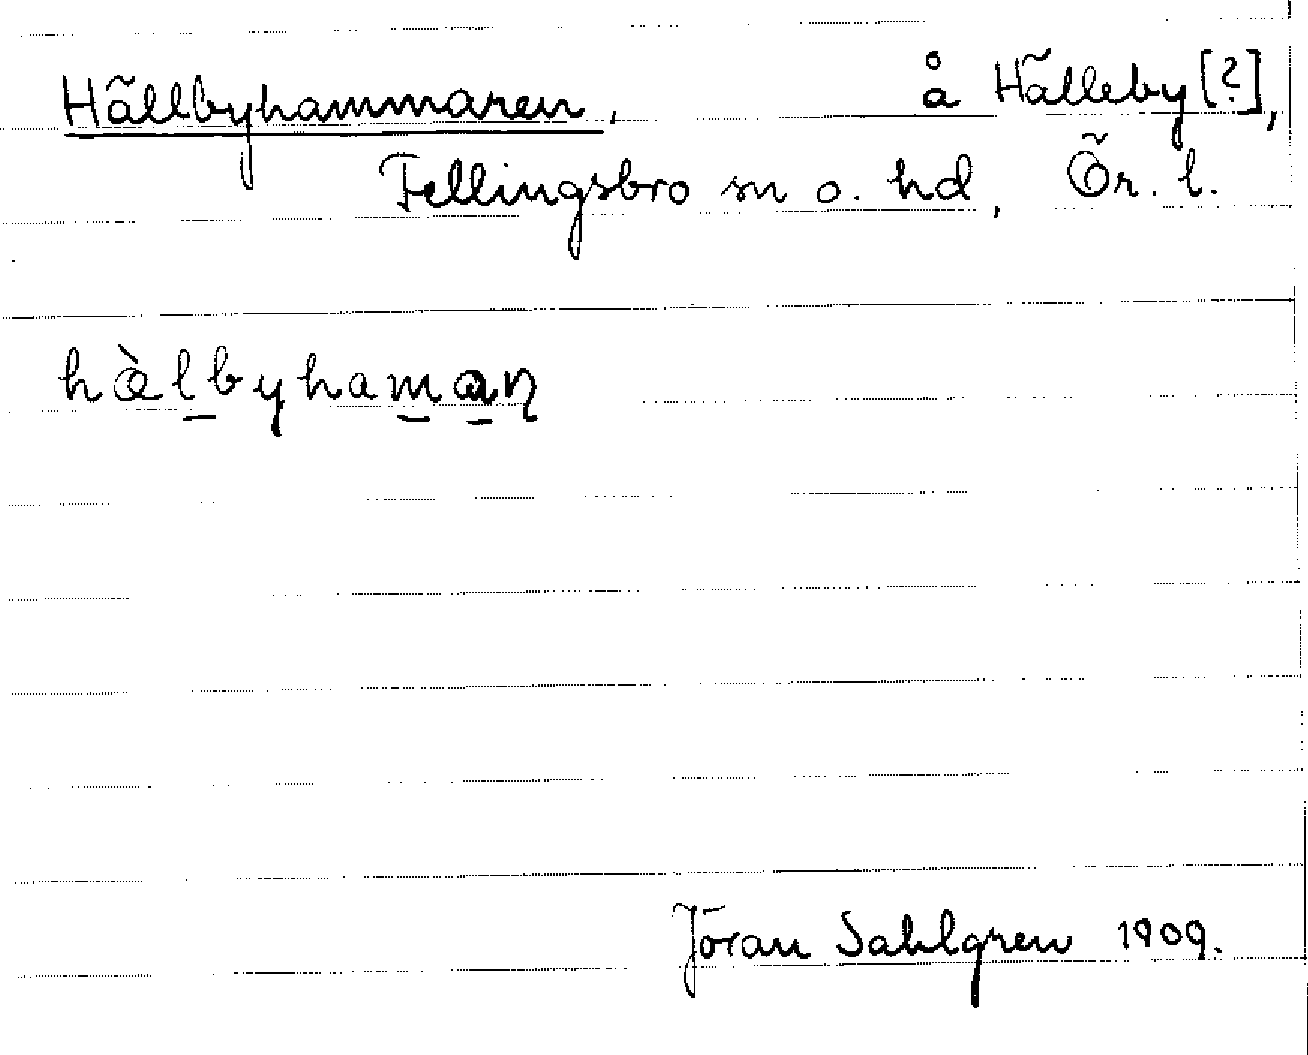 Hällbyhammaren, å Hälleby [?],
Fellingsbro sn o. hd, Ör. l.
hàlbyhamaṇ
Jöran Sahlgren 1909.